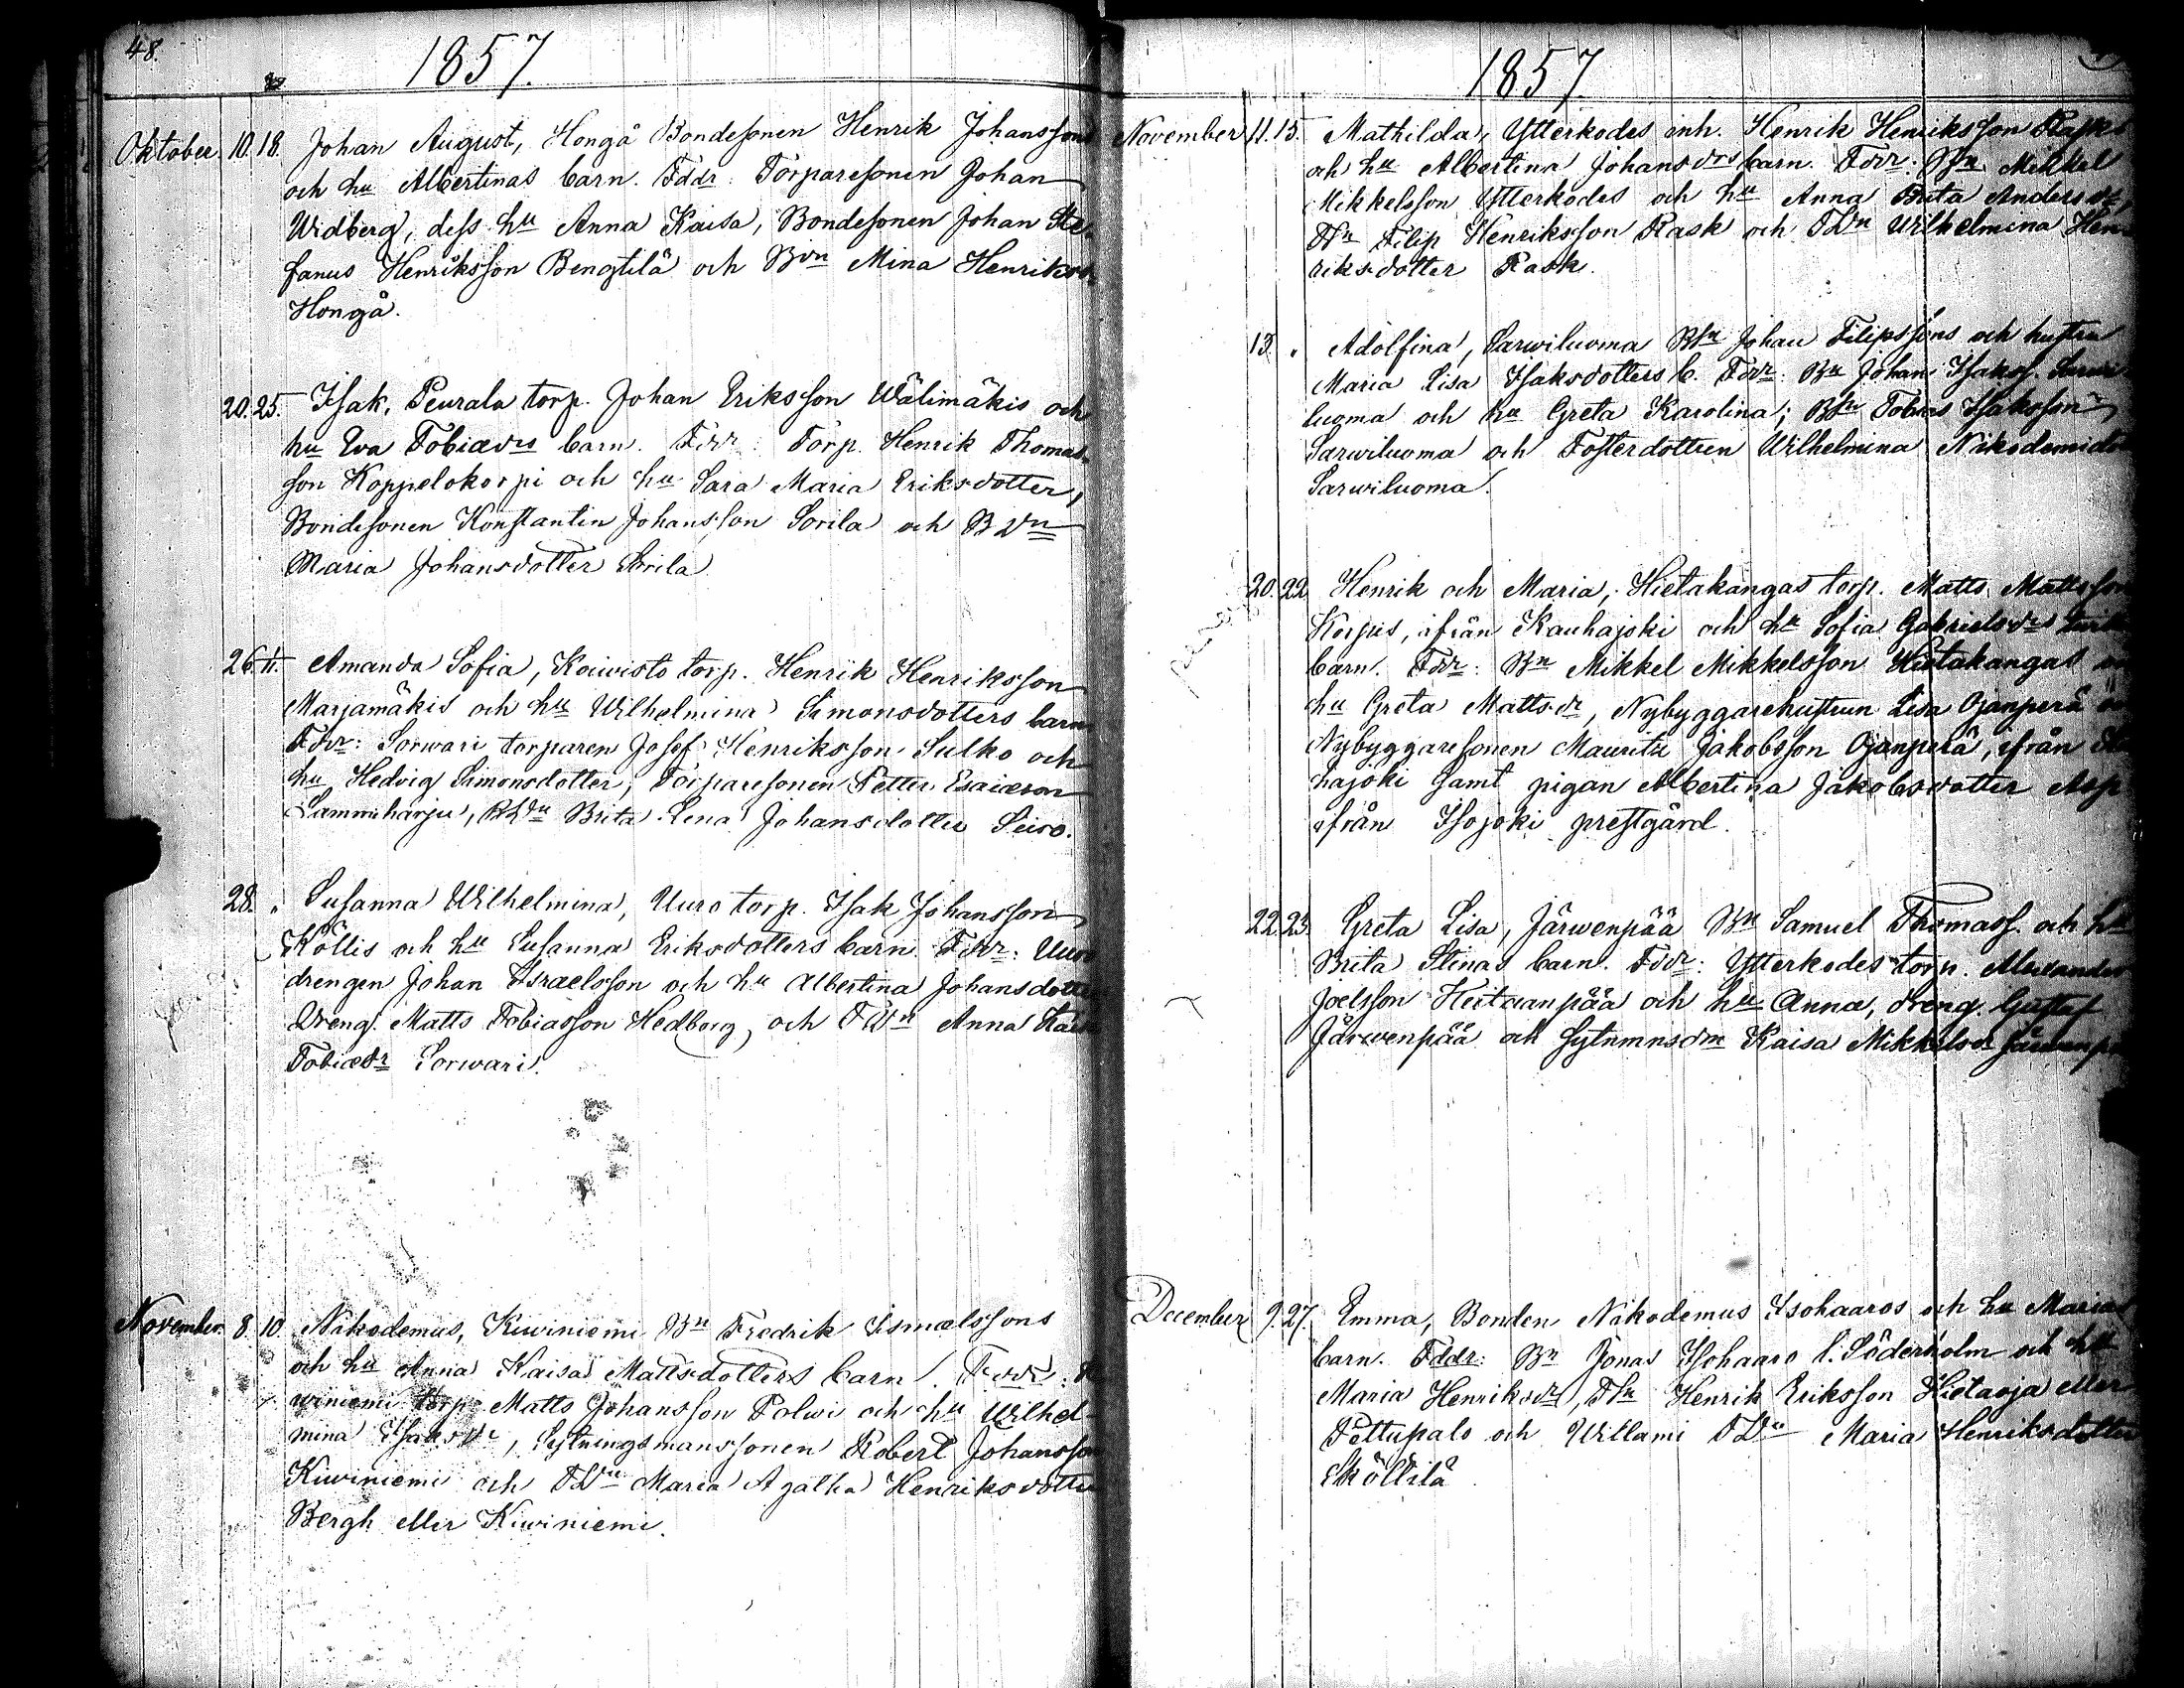 48.
1857.
Oktober 10. 18. Johan August, Hongå Bondesonen Henrik Johanssons
och hu Albertinas barn. Fddr: Torparesonen Johan
Widberg, dess hu Anna Kaisa, Bondesonen Johan Ste-
fanus Henriksson Bengtilä och Bdn Mina Henriksdr
Hongå.
20. 25. Isak, Peurala torp. Johan Eriksson Wälimäkis och
hu Eva Tobiædrs barn. Fddr: Torp. Henrik Thomas-
son Koppelokorpi och hu Sara Maria Eriksdotter,
Bondesonen Konstantin Johansson Sorila och BDn
Maria Johansdotter Sorila
26. Amanda Sofia, Koiwisto torp. Henrik Henriksson
Marjamäkis och hu Wilhelmina Simonsdotters barn
Fddr: Sorwari torparen Josef Henriksson Sulko och
hu Hedvig Simonsdotter, Torparesonen Petter Esaiæson
Lamminharju, Brita Lena Johansdotter Seiro.
28. " Susanna Wilhelmina, Uuro torp. Isak Johansson
Köllis och hu Susanna Eriksdotters barn. Fddr: Uuro
drengen Johan Israelsson och hu Albertina Johansdotter
Dreng. Matts Tobiasson Hedborg, och TDn Anna
Tobiædr Sorwari.
November 8. 10. Nikodemus, Kiwiniemi Bn Fredrik Ismaelssons
och hu Anna Kaisa Mattsdotters barn. Fddr: Ki
winiemi torp. Matts Johansson Polwi och hu Wilhel-
mina Isaksdr, Sytningsmanssonen Robert Johansson
Kiwiniemi och TDn Maria Agatha Henriksdotter
Bergh eller Kiwiniemi.
1857.
November 11. 15. Mathilda, Ytterkodes inh. Henrik Henriksson Rasks
och hu Albertina Johansdrs barn. Fddr: Mikkel
Mikkelsson Ytterkodes och hu Anna Brita Andersdr,
Filip Henriksson Rask och TDn Wilhelmina Hen-
riksdotter Rask.
13. " Adolfina, Sarwiluoma BSn Johan Filipssons och hustru
Maria Lisa Isaksdotters b. Fddr: Bn Johan Isakss. Sarwi-
luoma och hu Greta Karolina; BSn Tobias Isaksson
Sarwiluoma och Fosterdottren Wilhelmina Nikodemidr
Sarwiluoma.
20. 22. Henrik och Maria, Hietakangas torp. Matts Mattsson
Korpis, ifrån Kauhajoki och hu Sofia Gabrielsdr
barn. Fddr: Bn Mikkel Mikkelsson Hietakangas
hu Greta Mattsdr, Nybyggarehustrun Lisa Ojanperä
Nybyggaresonen Mauritz Jakobsson Ojanperä, ifrån
hajoki samt pigan Albertina Jakobsdotter Asp
ifrån Isojoki prestgård.
22. 23. Greta Lisa, Järwenpää Bn Samuel Thomass. och hu
Brita Stinas barn. Fddr: Ytterkodes torp. Alexander
Joelsson Heitaanpää och hu Anna, dreng. Gustaf
Järwenpää och Sytnmnsdn Kaisa Mikkelsdr Järwenpää
December 9. 27. Emma, Bonden Nikodemus Isohaaros och hu Marias
barn. Fddr: Bn Jonas Isohaaro l. Söderholm och hu
Maria Henriksdr, TSn Henrik Eriksson Hietaoja eller
Pettupalo och Willami TDn Maria Henriksdotter
Sköllilä